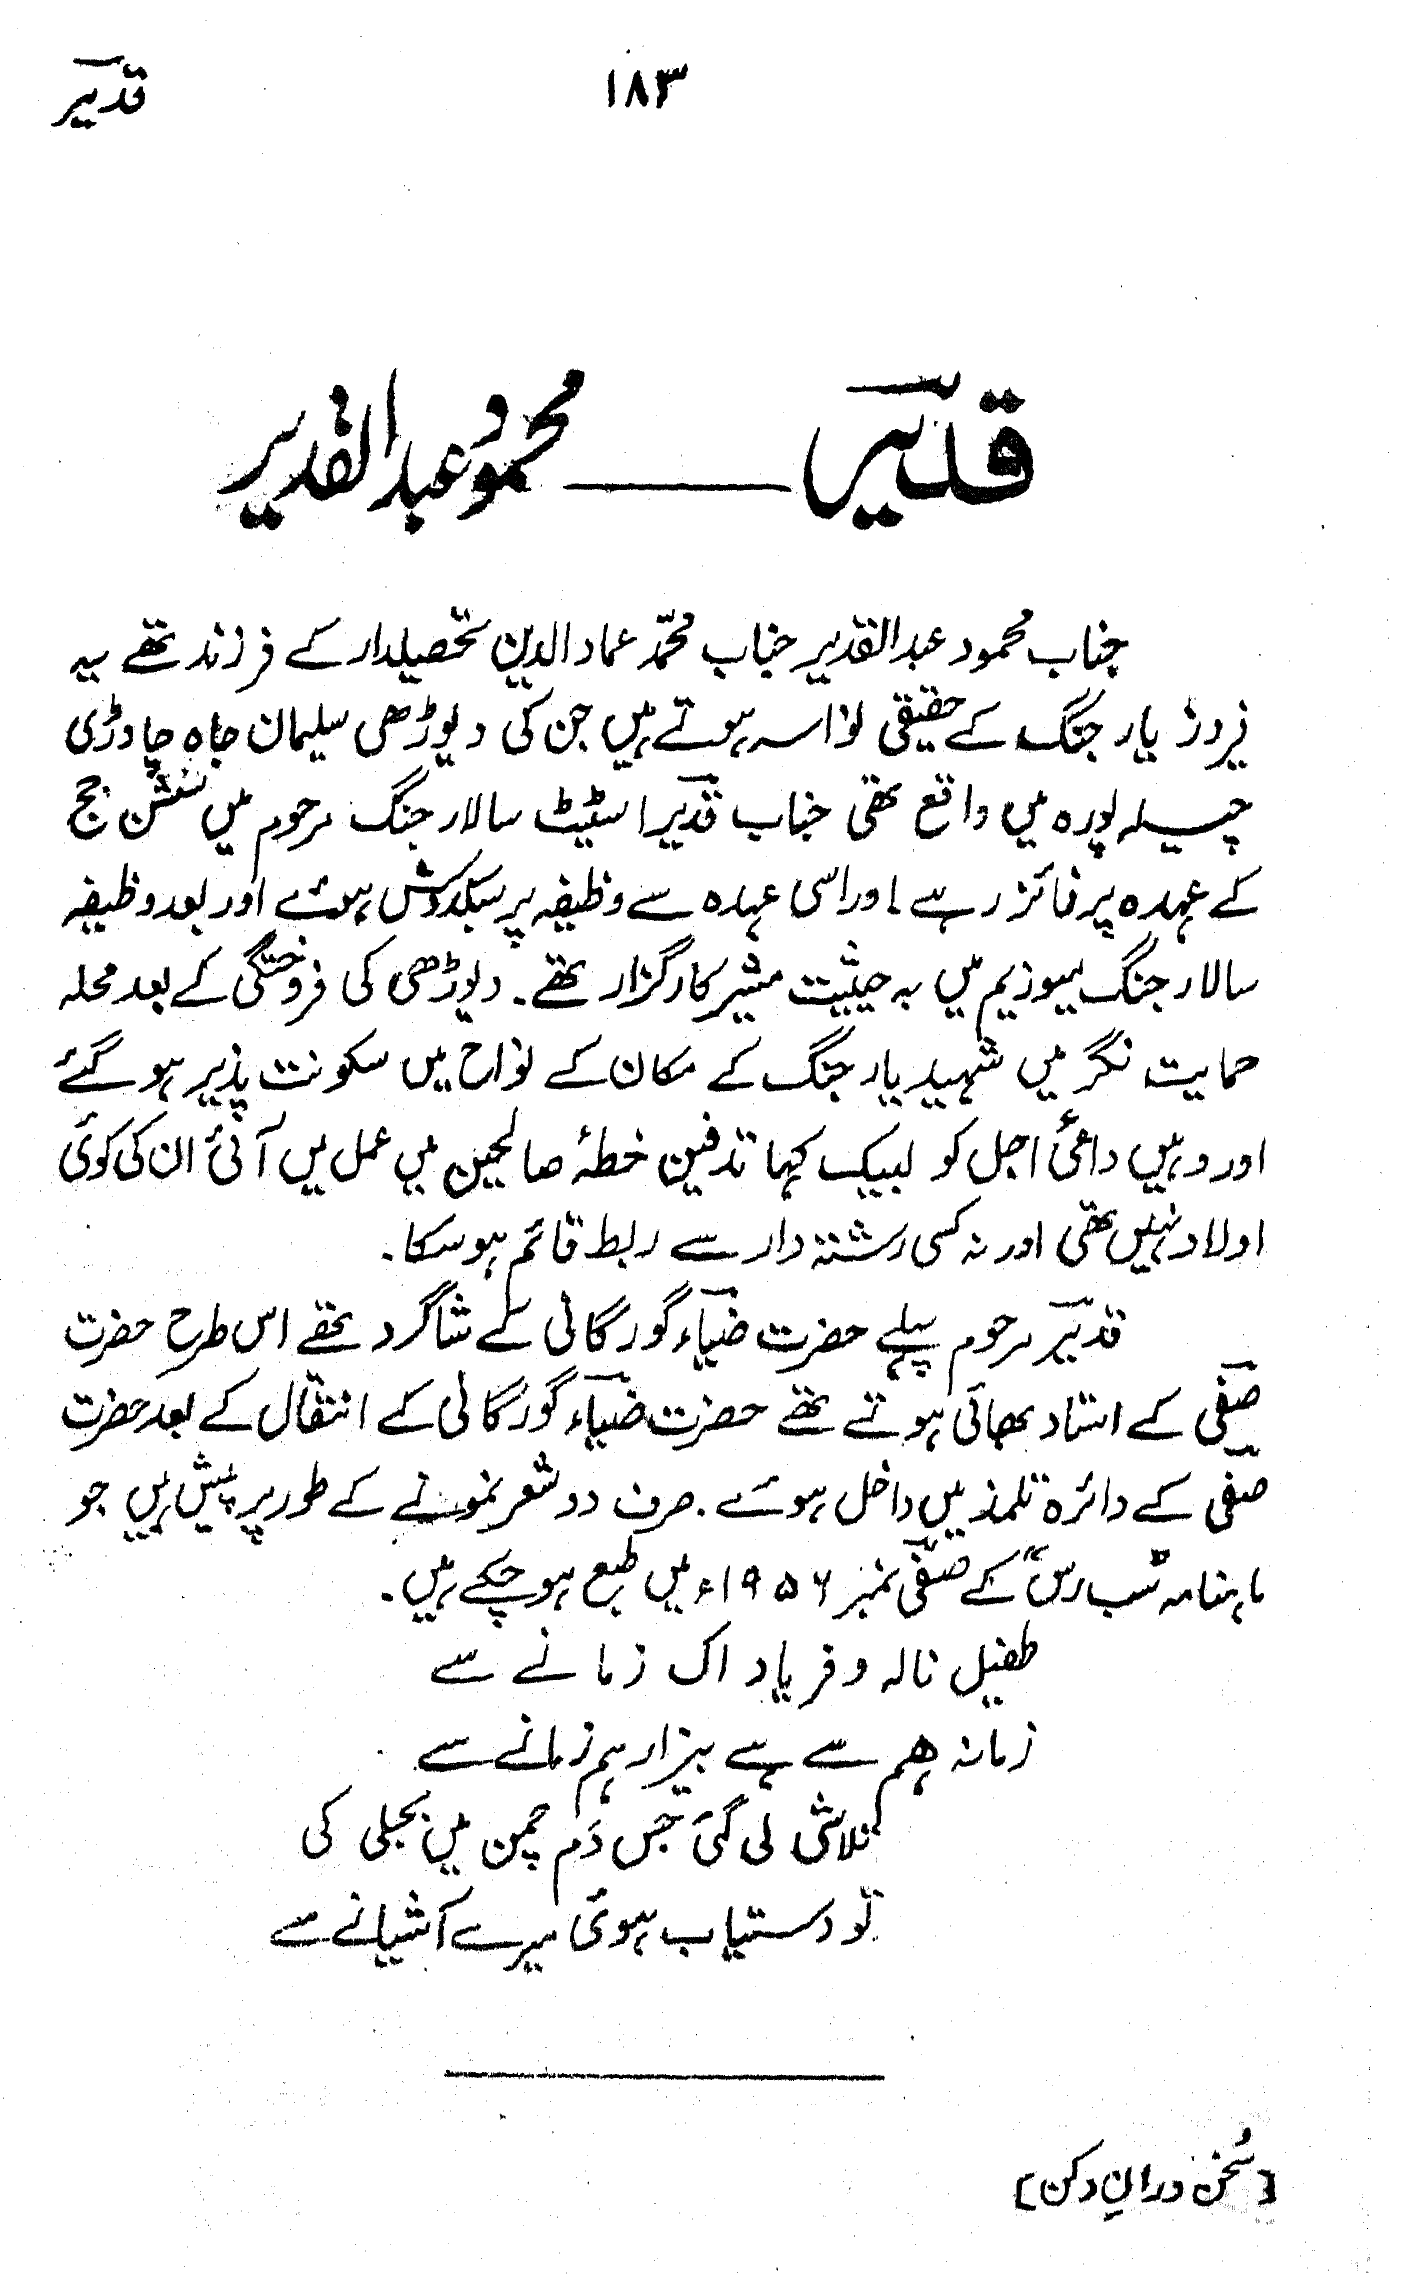 قدیرؔ ۱۸۳
قدیرؔ ــــــ محمود عبدالقدیر
جناب محمود عبدالقدیر جناب محمّد عماد الدین تحصیلدار کے فرزند تھے یہ
فیروز یار جنگ کے حقیقی نواسہ ہوتے ہیں جن کی دیوڑھی سلیمان جاہ چاوڑی
چیلہ پورہ میں واقع تھی جناب قدیرؔ اسٹیٹ سالار جنگ مرحوم میں سشن جج
کے عہدہ پر فائز رہے ۔ اور اسی عہدہ سے وظیفہ پر سبکدوش ہوئے اور بعد وظیفہ
سالار جنگ میوزیم میں بہ حیثیت مشیر کارگزار تھے۔ دیوڑھی کی فروختگی کے بعد محلہ
حمایت نگر میں شہید یار جنگ کے مکان کے نواح میں سکونت پذیر ہو گئے
اور وہیں داعیٔ اجل کو لبیک کہا تدفین خطۂ صالحین میں عمل میں آئی ان کی کوئی
اولاد نہیں تھی اور نہ کسی رشتہ دار سے ربط قائم ہوسکا۔
قدیرؔ مرحوم پہلے حضرت ضیاءؔ گورگانی کے شاگرد تھے اس طرح حضرت
صفیؔ کے استاد بھائی ہوتے تھے حضرت ضیاءؔ گورگانی کے انتقال کے بعد حضرت
صفیؔ کے دائرہ تلمذ میں داخل ہوئے۔ صرف دو شعر نمونے کے طور پر پیش ہیں جو
ماہنامہ "سب رس" کے صفیؔ نمبر ۱۹۵۶ء میں طبع ہو چکے ہیں۔
طفیل نالہ و فریاد اک زمانے سے
زمانہ ھم سے ہے بیزار ہم زمانے سے
تلاشی لی گئی جس دَم چمن میں بجلی کی
تو دستیاب ہوئی میرے آشیانے سے
[سُخن ورانِ دکن]